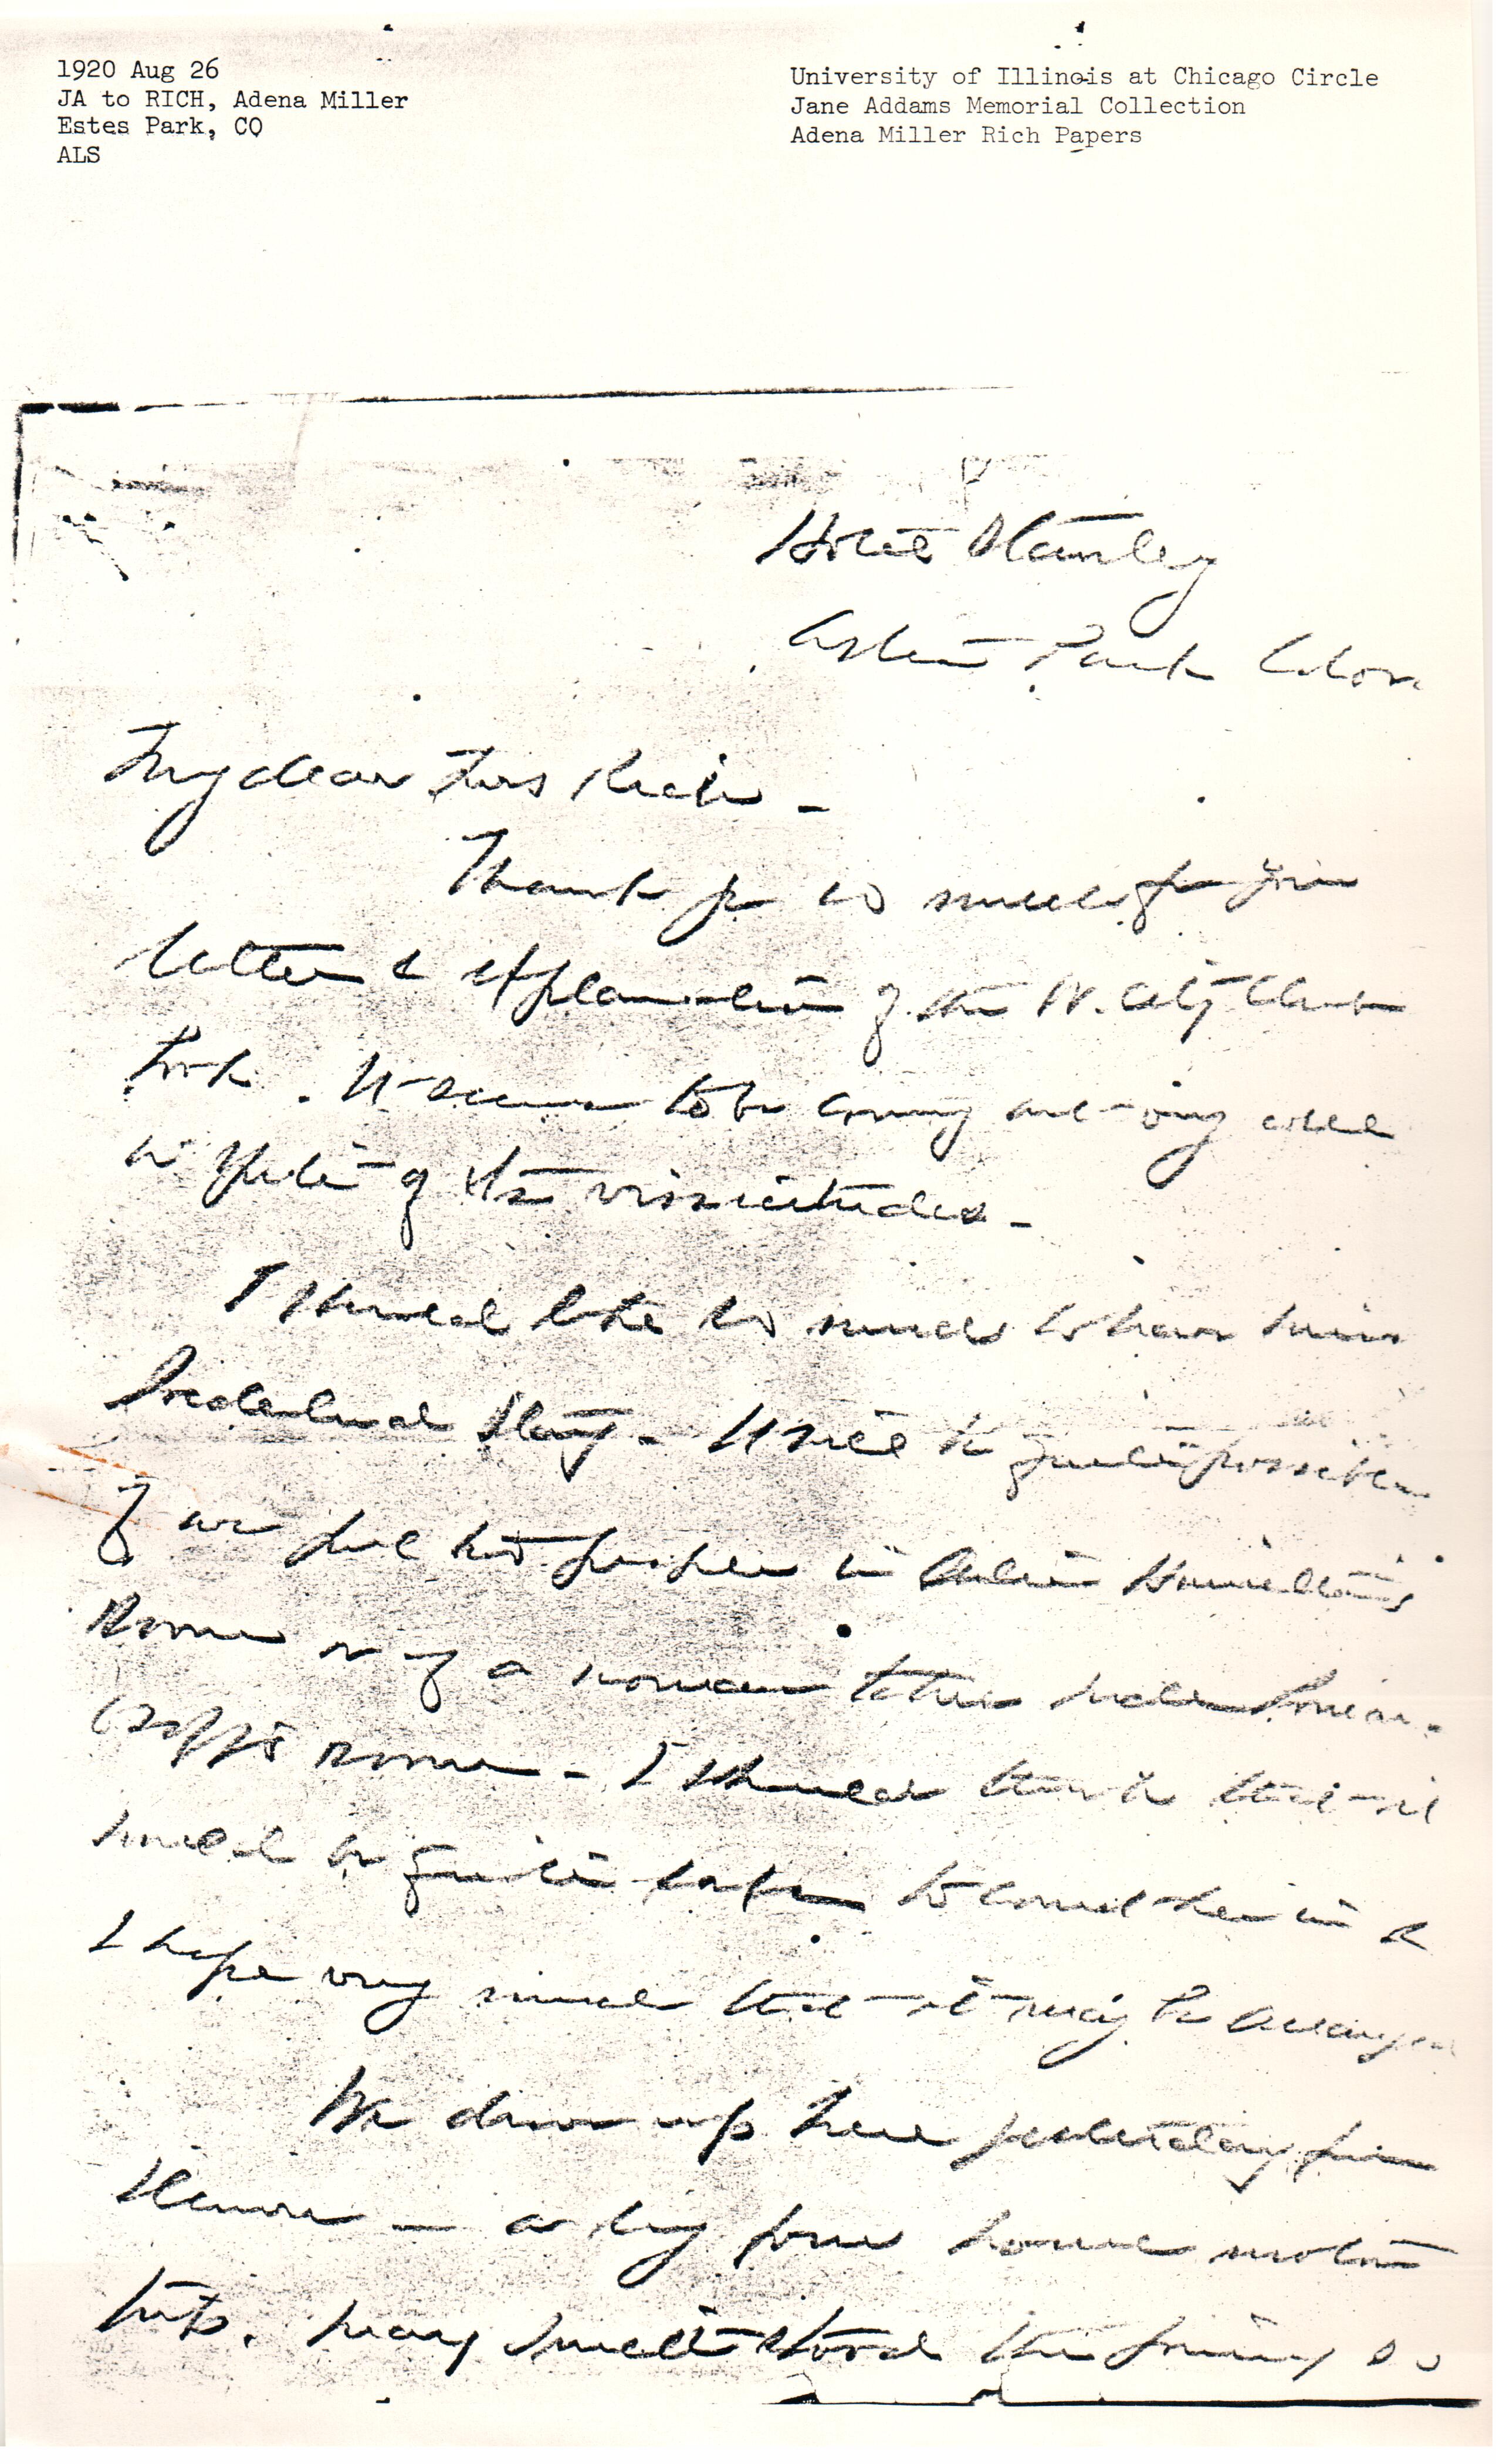 1920 Aug 26
JA to RICH, Adena Miller
Estes Park, CO
ALS
University of Illinois at Chicago Circle
Jane Addams Memorial Collection
Adena Miller Rich Papers
Hotel Stanley
Estes Park Colo
My dear Mrs Rich –
Thank you so much for your
letter & explanation of the W. City Club
book. It seems to be coming out very well
in spite of its vicissitudes –
I should like so much to have
– It will be quite possible
if we put two people in Alice Hamilton's
Room or if a woman takes
room – I should think that it
would be quite safe to count her in &
I hope very much that it may be arranged
We drove up here yesterday from
Denver – a long four hours motor
trip. Mary Smith stood the journey so